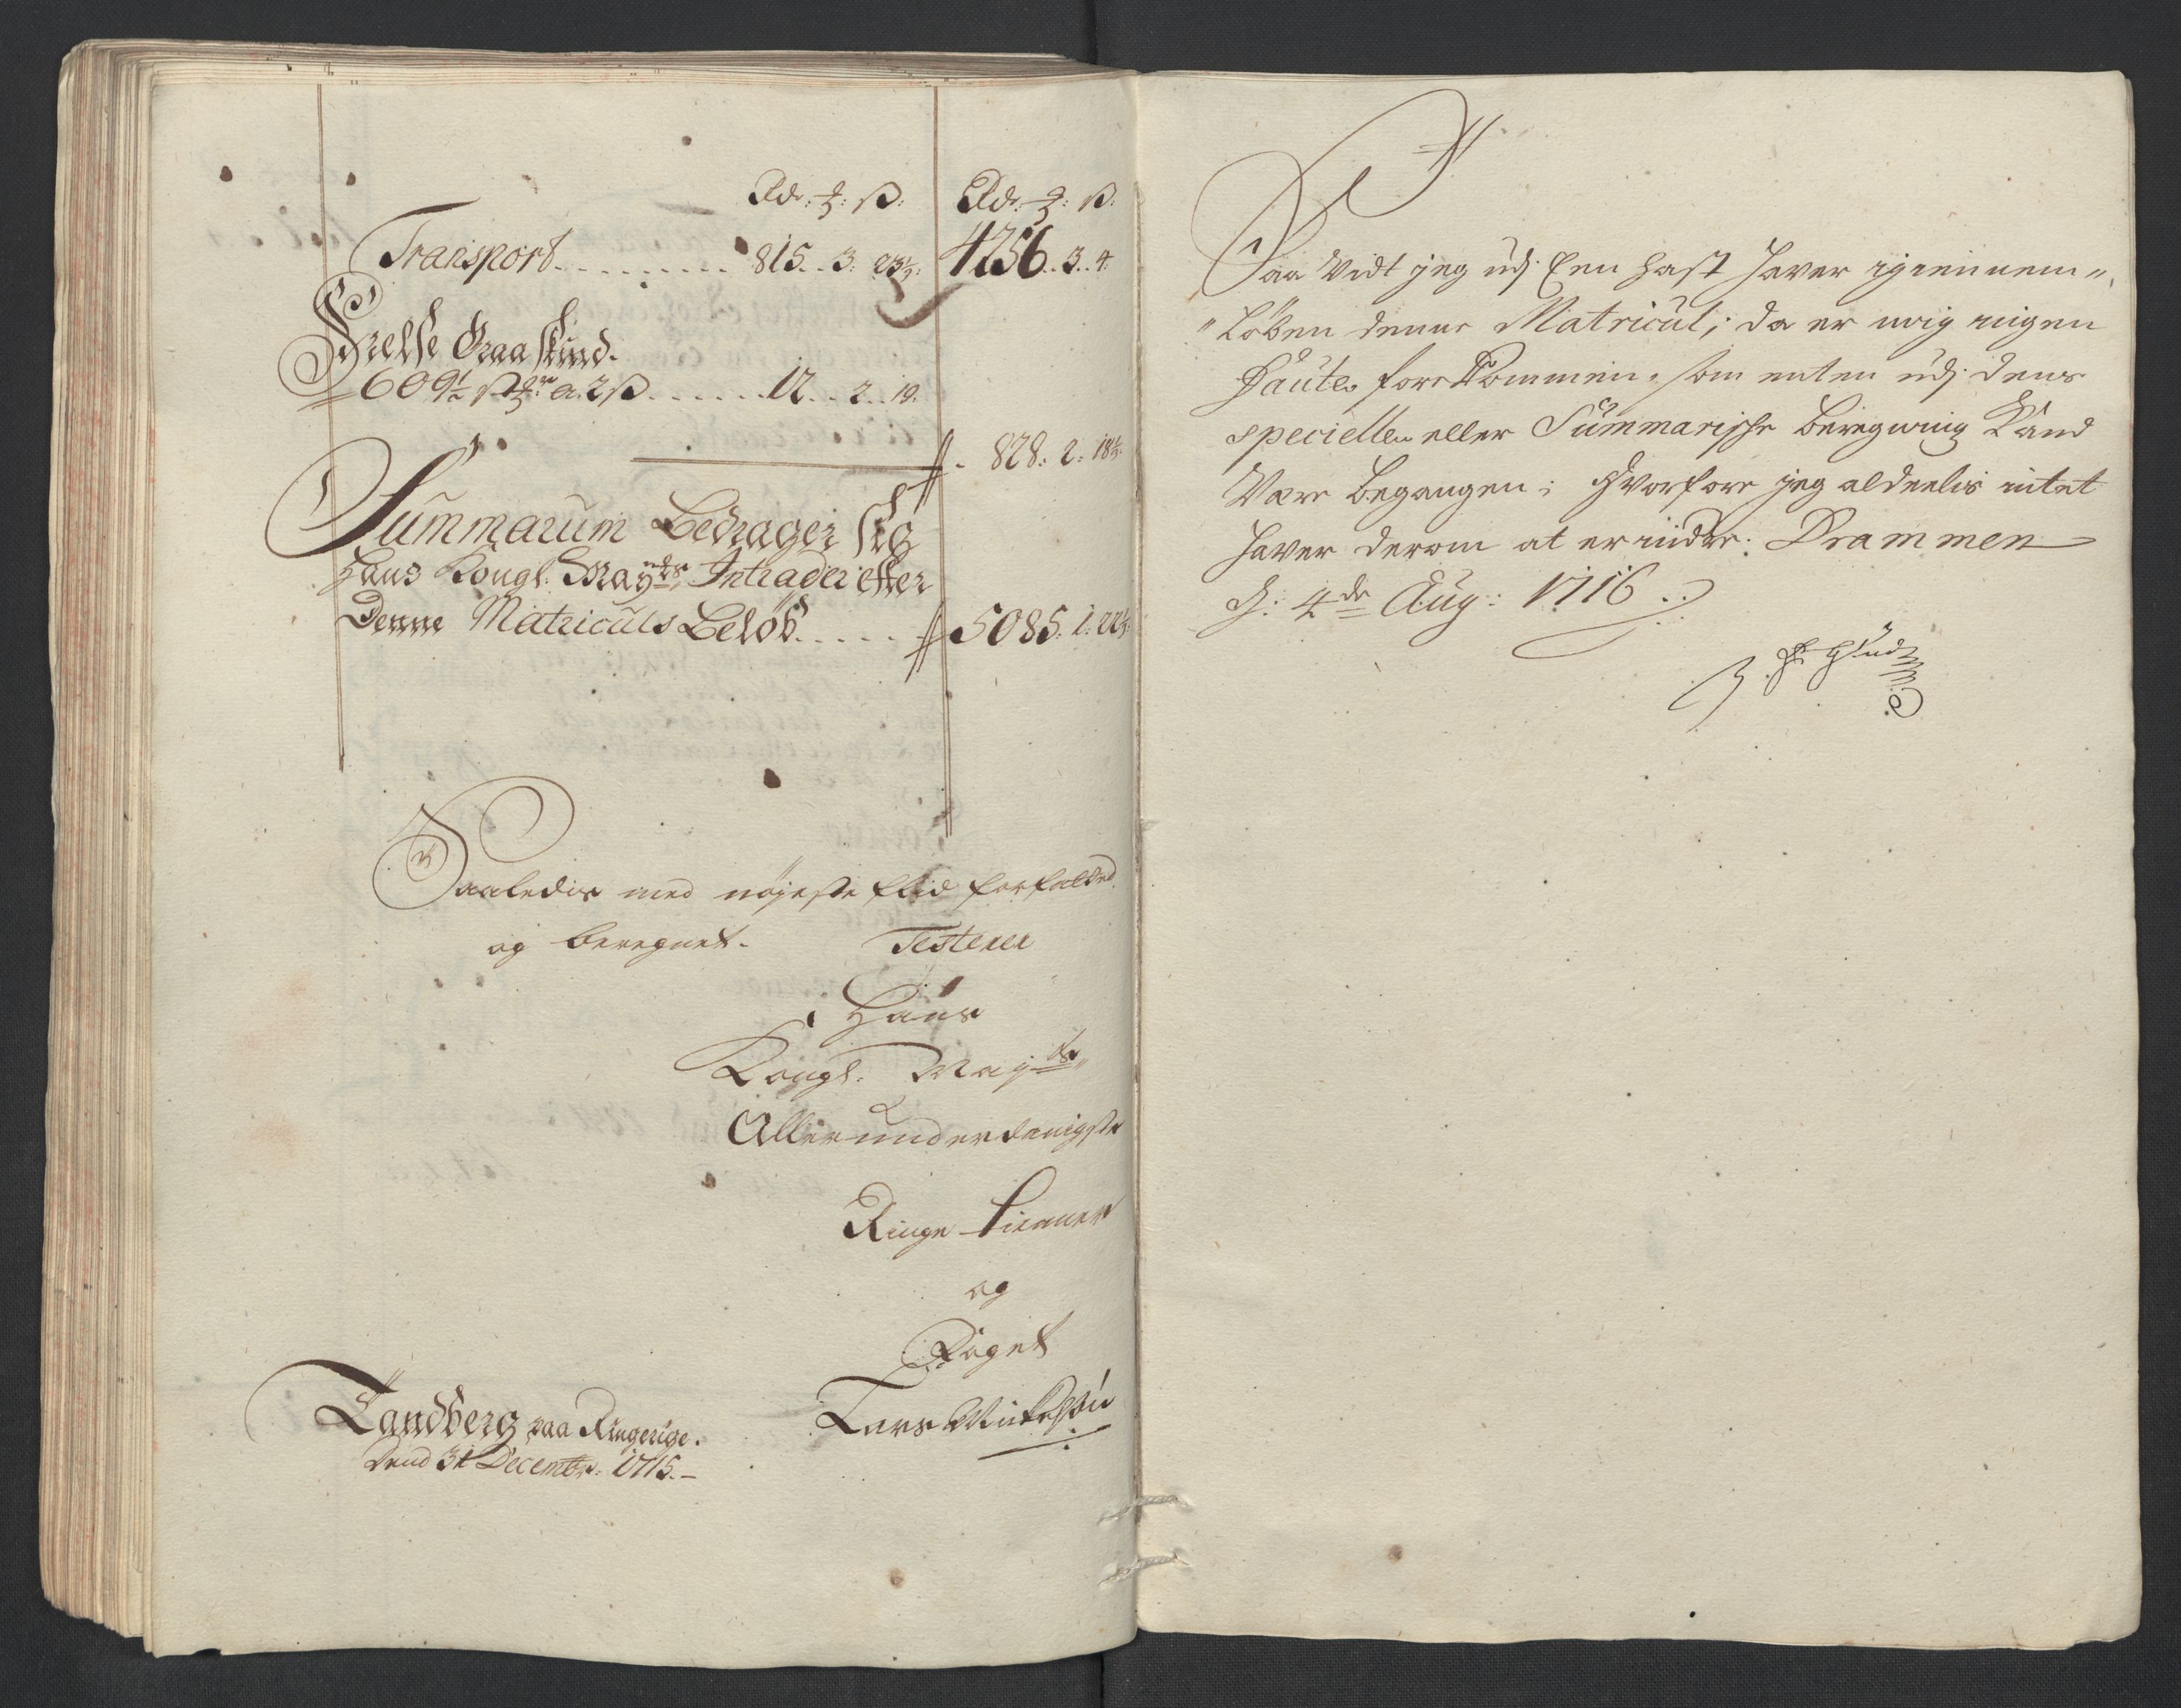 Rdr: ꝶ: ß: Rdr: ꝶ: ß:
Transport 815.. 3: 23½: 4256.. 3.. 4.
Helse Graaskind.
609½ a. 2 ß 12.. 2.. 19.
828: 2: 18½:
Summarum Bedrager sig
Hans Kongl: May:ts Intrader efter
Denne Matriculs Beløb 5085: 1: 22½:
Saaledis med nøjeste flid forfatted
og beregnet. Testerer
Hans
Kongl: May:ts
Allerunderdanigste
Ringe tienner
og
Foget
Tandberg paa Ringerige.
Dend 31 Decembr: 1715.
Saa vidt jeg udj Een hast haver igiennem„
„løben denne Matricul; da er mig ingen
Faute forekommen, som enten udj dens
specielle eller Summariske beregning kand
Være begangen; Hvorfore jeg aldeelis intet
haver derom at erindre: Drammen
d: 4de Aug: 1716